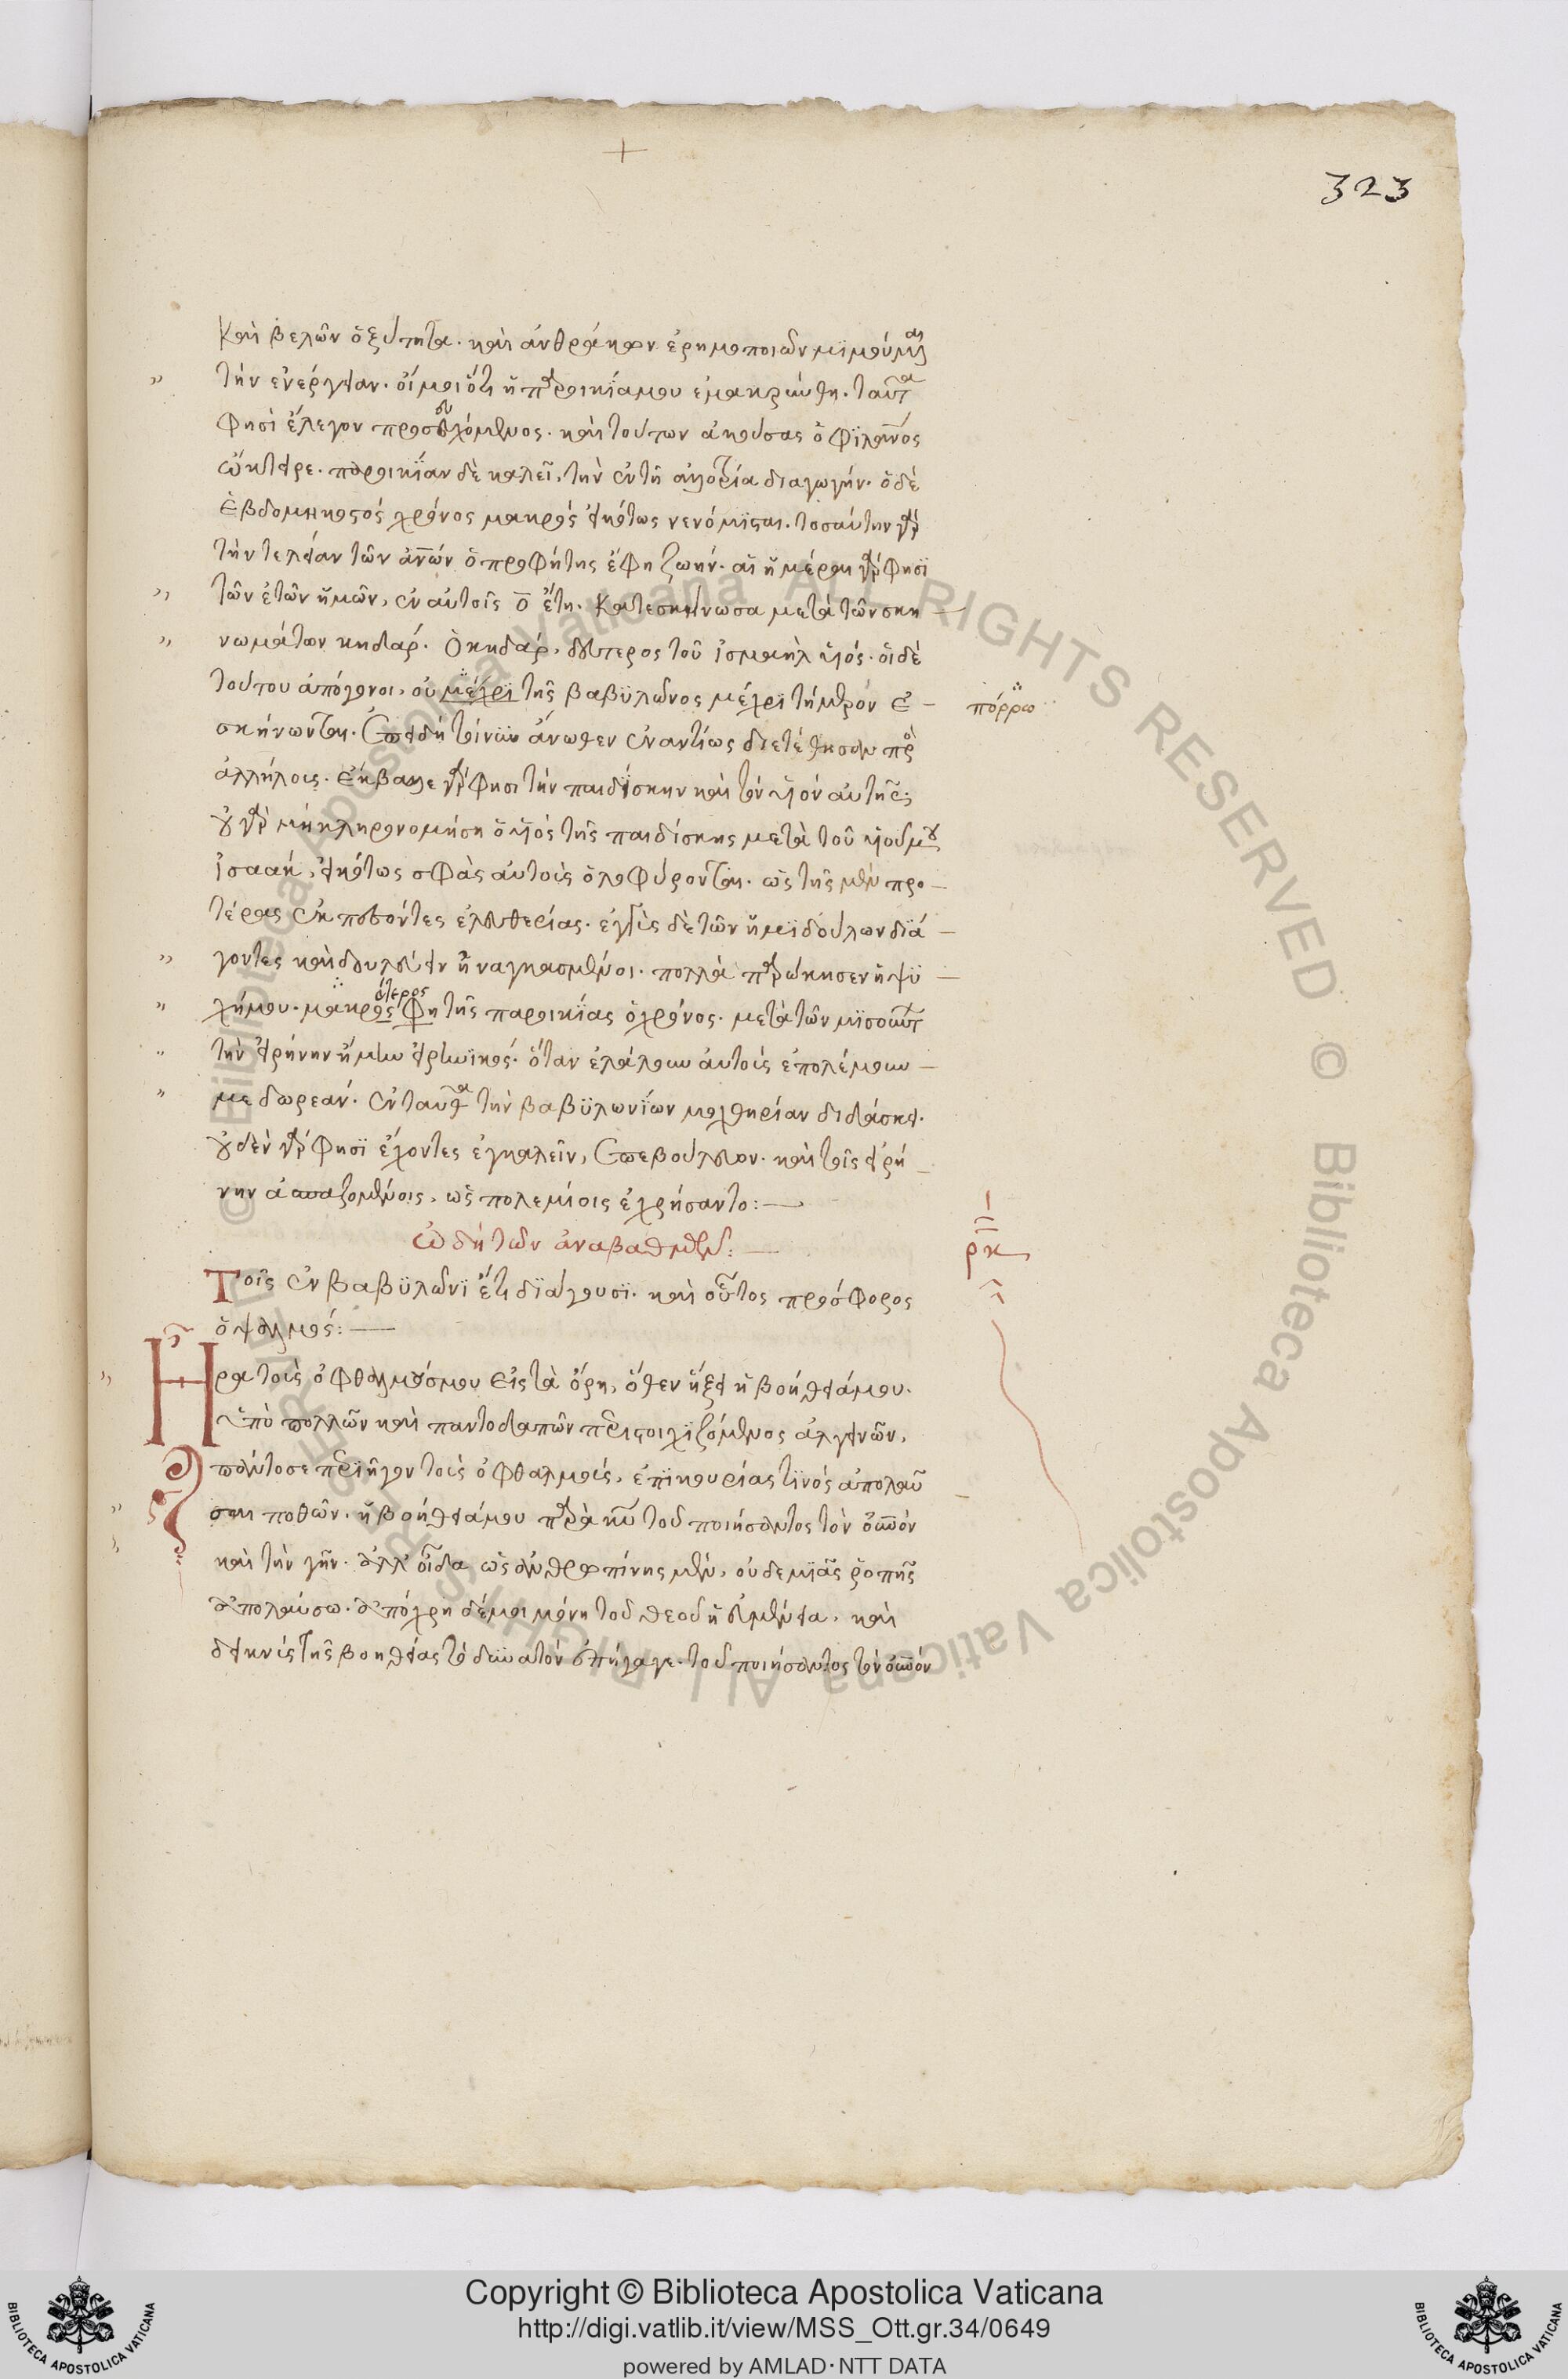 323
καὶ βελῶν ὀξύτητα. καὶ ἀνθράκων ἐρημοποιῶν μιμούμαι
τὴν ἐνέργειαν. οἴμοι ὅτι ἡ παροικία μου ἐμακρύνθη. ταῦτα
φησὶ ἔλεγον προσευχόμενος. καὶ τούτων ἀκούσας ὁ φιλανος
ὤκτειρε. παροικίαν δὲ καλεῖ, τὴν ἐν τῇ ἀλοτρία διαγωγήν. ὁ δὲ
ἑβδομηκοστός χρόνος μακρός εἰκότως νενόμισται. τοσαύτην γὰρ
τὴν τελείαν τῶν ἀνων ὁ προφήτης ἔφη ζωήν. αἱ ἡμέραι γὰρ φησὶ
τῶν ἐτῶν ἡμῶν, ἐν αὐτοῖς ο ἔτη. κατεσκήνωσα μετὰ τῶν σκη
νωμάτων κηδάρ. ὁ κηδάρ, δεύτερος τοῦ ἰσμαὴλ υἱός. οἱ δὲ
τούτου ἀπόγονοι, οὐ μέχρι τῆς βαβυλῶνος μέχρι τήμερον ἐ
πόρρω
σκήνωνται. ἐπειδὴ τοίνυν ἄνωθεν ἐναντίως διετέθησαν προ
ἀλλήλοις. ἔκβαλε γάρ φησι τὴν παιδίσκην καὶ τὸν υἱόν αὐτῆς;
οὐ γὰρ μὴ κληρονομήση ὁ υἱός τῆς παιδίσκης μετὰ τοῦ υἱοῦ μου
ἰσαάκ, εἰκότως σφὰς αὐτοὶς ὀλοφύρονται. ὡς τῆς μὲν προ
τέρας ἐκπεσόντες ἐλευθερίας. ἐγγὺς δὲ τῶν ἡμιδούλων διά
γοντες καὶ δουλεύειν ἠναγκασμένοι. πολλὰ παρώκησεν ἡ ψυ
χή μου. μακρός φη τῆς παροικίας ὁ χρόνος. μετὰ τῶν μισούντ
ότερος
τὴν εἰρήνην ἤμην εἰρηνικός. ὅταν ἐλάλουν αὐτοῖς ἐπολέμουν
με δωρεάν. ἐνταῦθα τὴν βαβυλωνίων μοχθηρίαν διδάσκει.
οὐδὲν γὰρ φησὶ ἔχοντες ἐγκαλεῖν, ἐπεβούλευον. καὶ τοῖς εἰρή
νην ἀσπαζομένοις, ὡς πολεμίοις ἐχρήσαντο:
ὠδὴ τῶν ἀναβαθμῶν:
ρκ
Τοῖς ἐν βαβυλῶνι ἔτι διάγουσι. καὶ οὗτος πρόσφορος
ὁ ψαλμός:
Ἦρα τοὶς ὀφθαλμούς μου εἰς τὰ ὄρη, ὅθεν ἥξει ἡ βοήθειά μου.
ὑπὸ πολλῶν καὶ παντοδαπῶν περιστοιχιζόμενος ἀλγεινῶν,
πάντοσε περιῆγον τοὶς ὀφθαλμοίς, ἐπικουρίας τινός ἀπολαῦ
σαι ποθῶν. ἡ βοήθειά μου παρὰ κυ τοῦ ποιήσαντος τὸν οὐνόν
καὶ τὴν γῆν. ἀλλ' οἶδα ὡς ἀνθρωπίνης μὲν, οὐδεμιᾶς ῥοπῆς
ἀπολαύσω. ἀπόχρη δέ μοι μόνη τοῦ θεοῦ ἡ εὐμένεια, καὶ
δεικνὺς τῆς βοηθείας τὸ δυνατὸν ἐπήγαγε. τοῦ ποιήσαντος τὸν οὐνόν
Copyright © Biblioteca Apostolica Vaticana
http://digi.vatlib.it/view/MSS_Ott.gr.34/0649
powered by AMLAD·NTT DATA